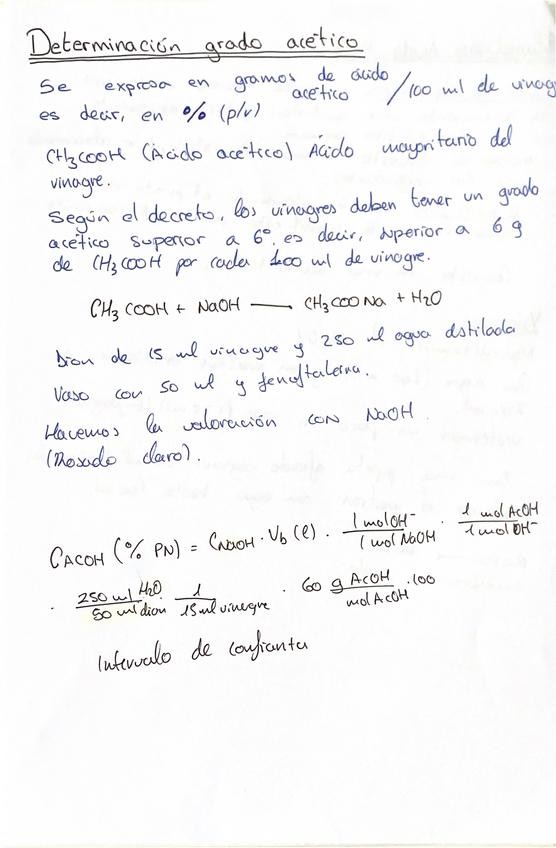 Determinación grado acético
Se expresa en gramos de ácido acético / 100 ml de vinag
es decir, en % (p/v)
CH3COOH (Ácido acético) Ácido mayoritario del
vinagre.
Según el decreto, los vinagres deben tener un grado
acético superior a 6º. es decir, superior a 6 g
de CH3COOH por cada 100 ml de vinagre.
CH3COOH + NaOH —— CH3COONa + H2O
Dion de 15 ml vinagre y 250 ml agua dstilada
Vaso con 50 ml y fenoftaleina.
Hacemos la valoración con NaOH.
(Rosado claro).
CACOH (% PN) = CNaOH · Vb (l) · 1 mol OH⁻ / 1 mol NaOH · 1 mol AcOH / 1 mol OH⁻
· 250 ml H2O / 50 ml dion · 1 / 15 ml vinagre · 60 g AcOH / mol AcOH · 100
Intervalo de confianza